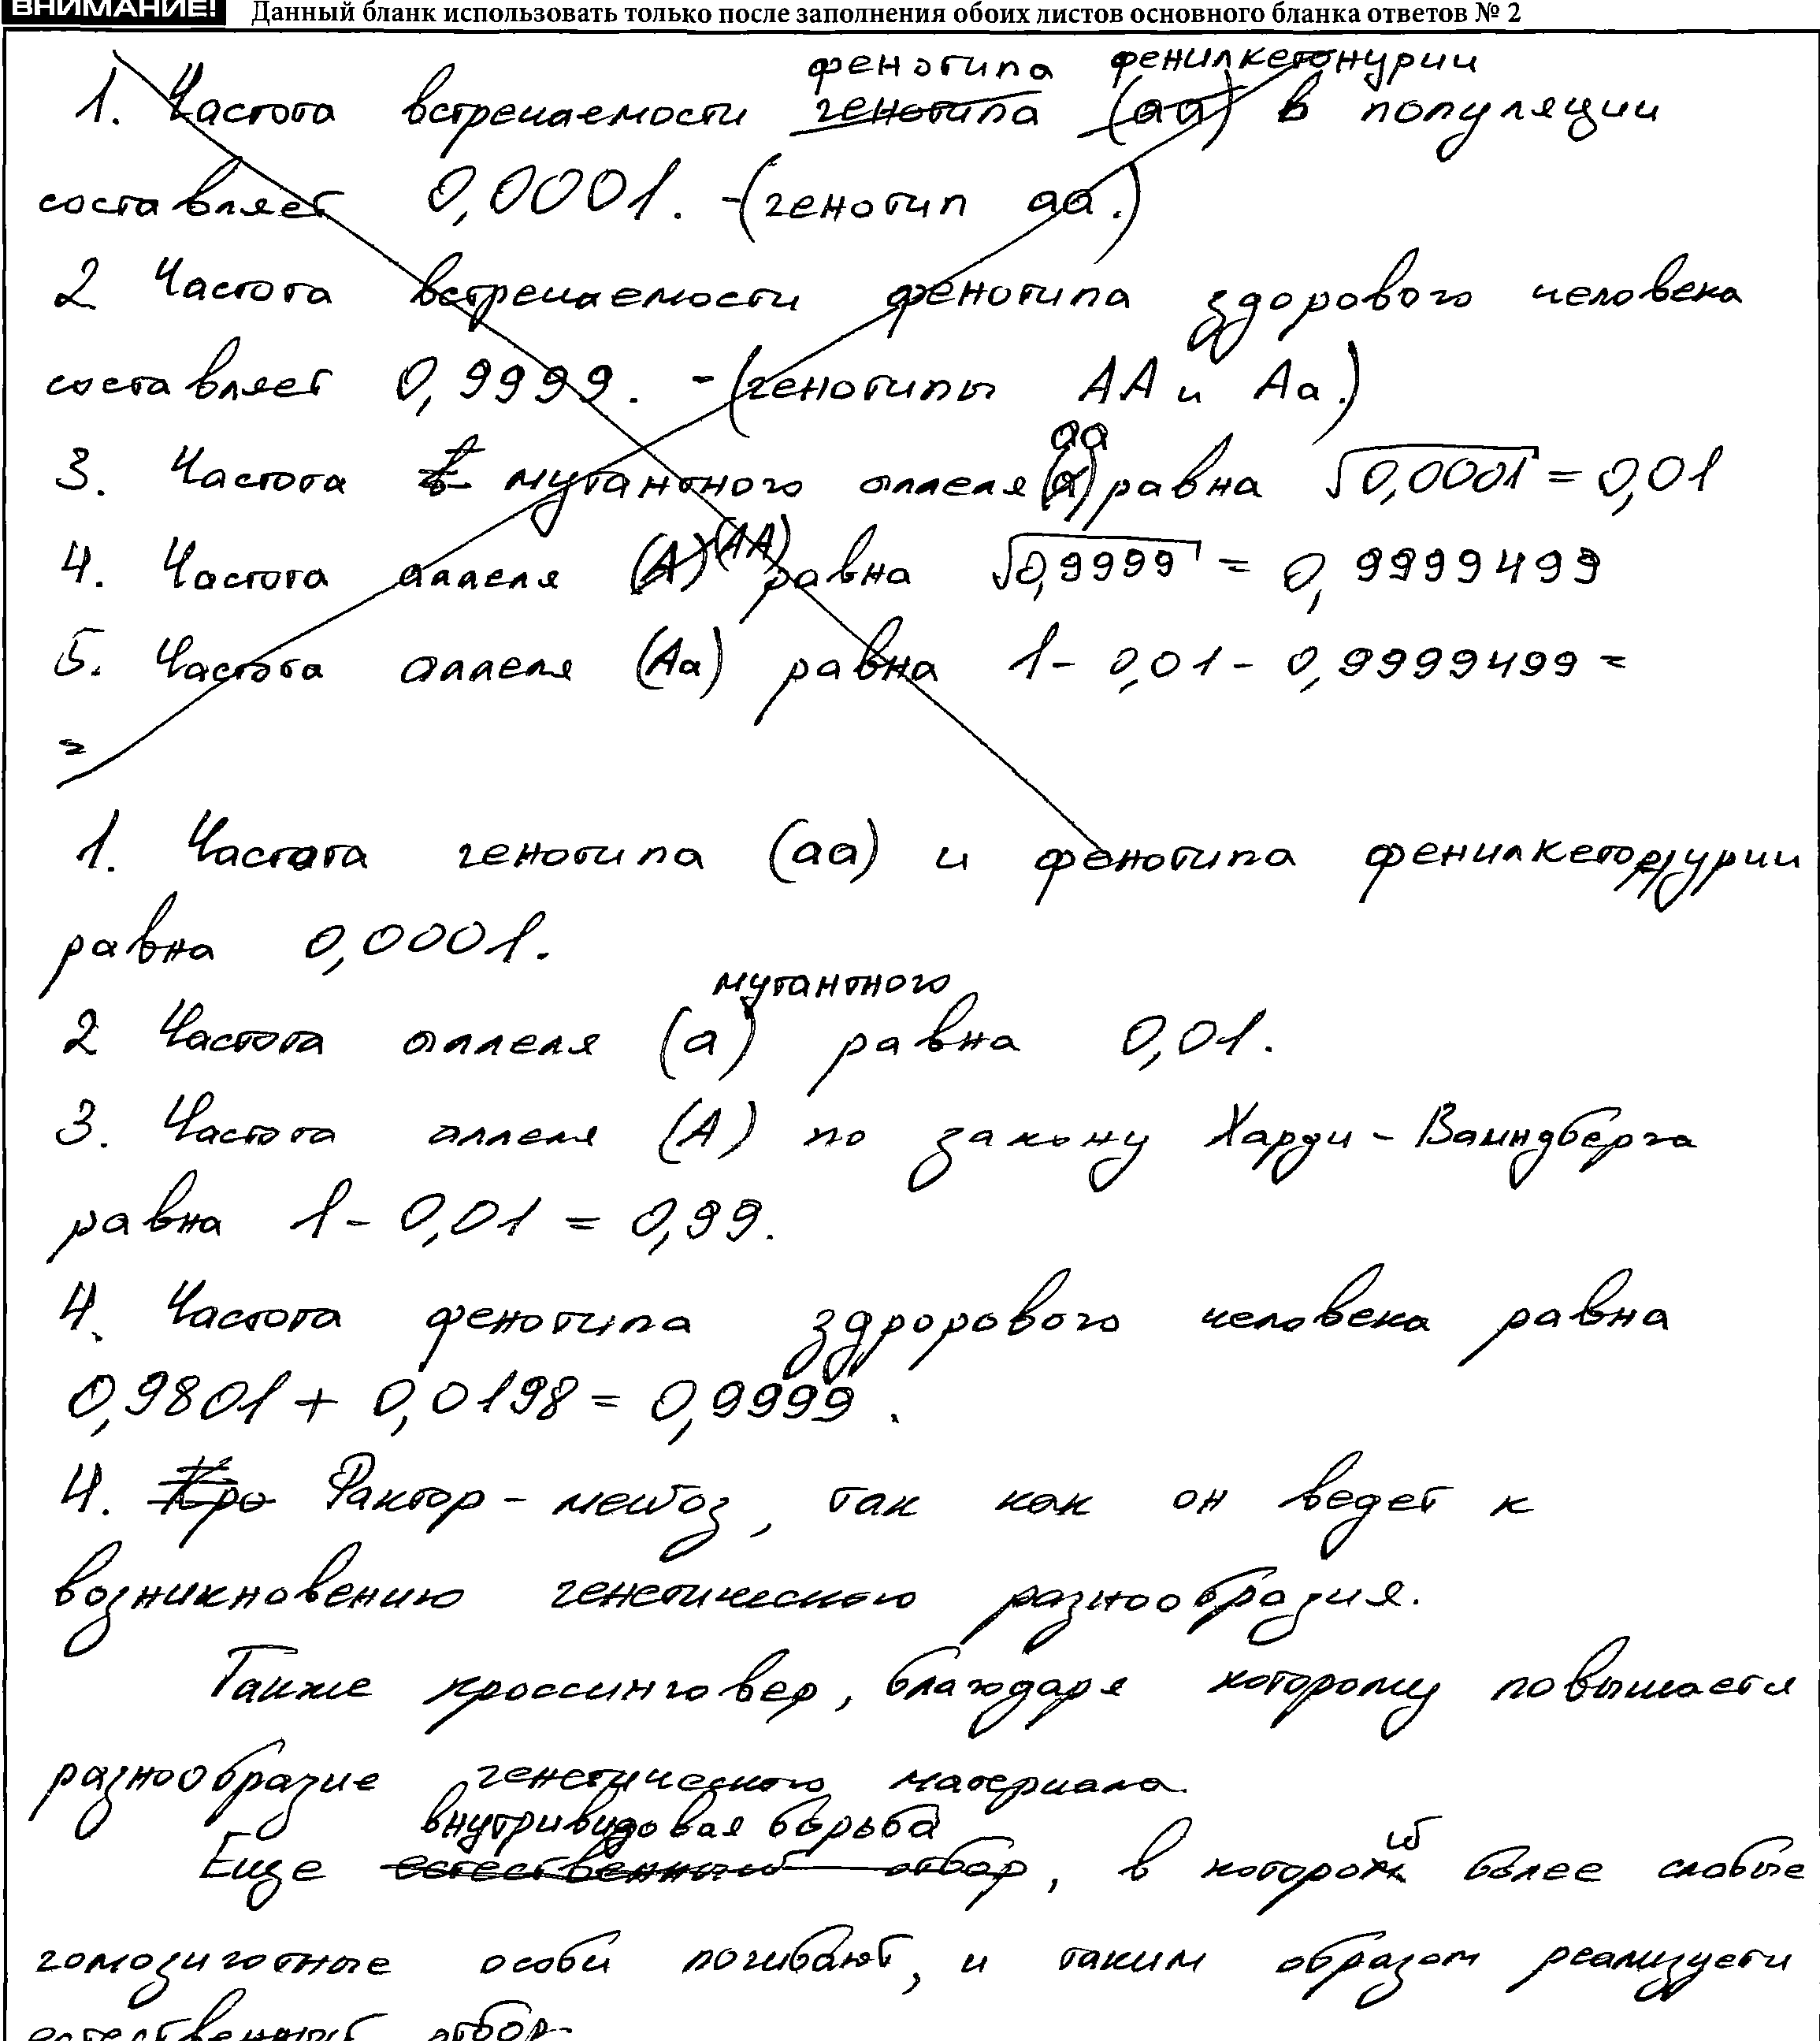 ВНИМАНИЕ! Данный бланк использовать только после заполнения обоих листов основного бланка ответов № 2
фенотипа фенилкетонурии
1. Частота встречаемости генотипа (аа) в популяции
составляет 0,0001. -(генотип аа.)
2 Частота встречаемости фенотипа здорового человека
составляет 0,9999. -(генотипы АА и Аа.)
аа
3. Частота мутантного аллеля (а) равна √0,0001 = 0,01
4. Частота аллеля (А) (АА) равна √0,9999 = 0,9999499
5. Частота аллеля (Аа) равна 1 - 0,01 - 0,9999499 =
=
1. Частата генотипа (аа) и фенотипа фенилкетонурии
равна 0,0001.
мутантного
2 Частота аллеля (а) равна 0,01.
3. Частота аллеля (А) по закону Харди - Ваиндберга
равна 1 - 0,01 = 0,99.
4. Частота фенотипа здрорового человека равна
0,9801 + 0,0198 = 0,9999.
4. Кро Фактор - мейоз, так как он ведет к
возникновению генетического разнообразия.
Также кроссинговер, благодаря которому повышается
разнообразие генетического материала.
внутривидовая борьба
Еще естественный отбор, в которой более слабые
гомозиготные особи погибают, и таким образом реализуети
естественный отбор.